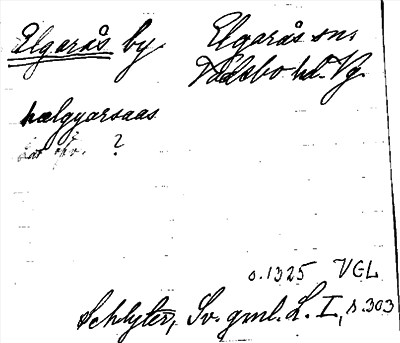 Elgarås by
Elgarås sn.
Vadsbo hd. Vg.
hælgyarsaas
o.1325 VGL
Schlyter, Sv. gml. L. I, s.303